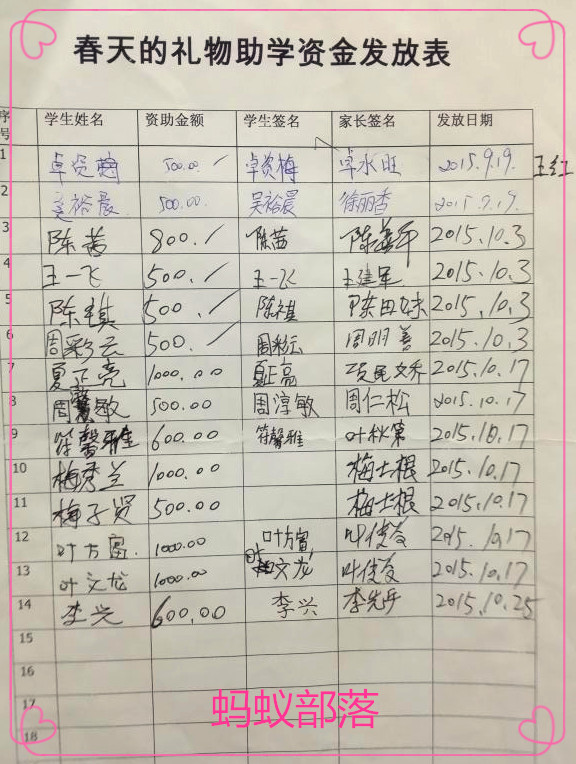 春天的礼物助学资金发放表
序号 学生姓名 资助金额 学生签名 家长签名 发放日期
1 卓贤梅 500.00 / 卓贤梅 卓水旺 2015.9.19. 王红
2 吴裕晨 500.00. 吴裕晨 徐丽香 2015.9.19.
3 陈茜 800. / 陈茜 2015.10.3
4 王一飞 500. / 王一飞 王建军 2015.10.3
5 陈祺 500. / 陈祺 2015.10.3
6 周彩云 500. / 周彩云 周明善 2015.10.3
7 夏正亮 1000.00 夏正亮 2015.10.17
8 周淳敏 500.00 周淳敏 周仁松 2015.10.17
9 符馨雅 600.00 符馨雅 叶秋第 2015.10.17
10 梅秀兰 1000.00 梅士根 2015.10.17
11 梅子贤 500.00 梅士根 2015.10.17
12 叶方富. 1000.00 叶方富 2015.10.17
13 叶文龙 1000.00 叶文龙 2015.10.17
14 李兴 600.00 李兴 2015.10.25
15
16
17
18
蚂蚁部落